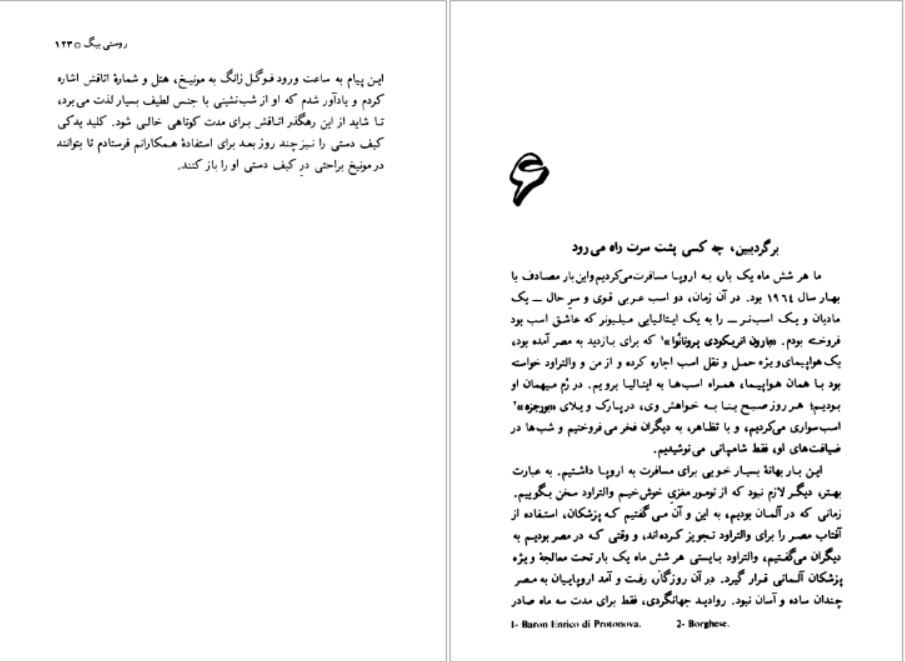 روستی بیگ □ ۱۲۳
این پیام به ساعت ورود فوگل زانگ به مونیخ، هتل و شمارهٔ اتاقش اشاره
کردم و یادآور شدم که او از شب‌نشینی با جنس لطیف بسیار لذت می‌برد،
تا شاید از این رهگذر اتاقش برای مدت کوتاهی خالی شود. کلید یدکی
کیف دستی را نیز چند روز بعد برای استفادهٔ همکارانم فرستادم تا بتوانند
در مونیخ براحتی درِ کیف دستی او را باز کنند.
۶
برگرد ببین، چه کسی پشت سرت راه می‌رود
ما هر شش ماه یک بار، به اروپا مسافرت می‌کردیم و این بار مصادف با
بهار سال ۱۹٦٤ بود. در آن زمان، دو اسب عربی قوی و سرِ حال — یک
مادیان و یک اسب‌نر — را به یک ایتالیایی میلیونر که عاشق اسب بود
فروخته بودم. «بارون انریکودی پروتانُوا»۱ که برای بازدید به مصر آمده بود،
یک هواپیمای ویژه حمل و نقل اسب اجاره کرده و از من و والتراود خواسته
بود با همان هواپیما، همراه اسب‌ها به ایتالیا برویم. در رُم میهمان او
بودیم؛ هر روز صبح بنا به خواهش وی، در پارک ویلای «بورجزه»۲
اسب‌سواری می‌کردیم، و با تظاهر، به دیگران فخر می‌فروختیم و شب‌ها در
ضیافت‌های او، فقط شامپانی می‌نوشیدیم.
این بار بهانهٔ بسیار خوبی برای مسافرت به اروپا داشتیم. به عبارت
بهتر، دیگر لازم نبود که از تومور مغزیِ خوش‌خیم والتراود سخن بگوییم.
زمانی که در آلمان بودیم، به این و آن می‌گفتیم که پزشکان، استفاده از
آفتاب مصر را برای والتراود تجویز کرده‌اند، و وقتی که در مصر بودیم به
دیگران می‌گفتیم، والتراود بایستی هر شش ماه یک بار تحت معالجهٔ ویژه
پزشکان آلمانی قرار گیرد. در آن روزگار، رفت و آمد اروپاییان به مصر
چندان ساده و آسان نبود. روادید جهانگردی، فقط برای مدت سه ماه صادر
1- Baron Enrico di Protonova. 2- Borghese.